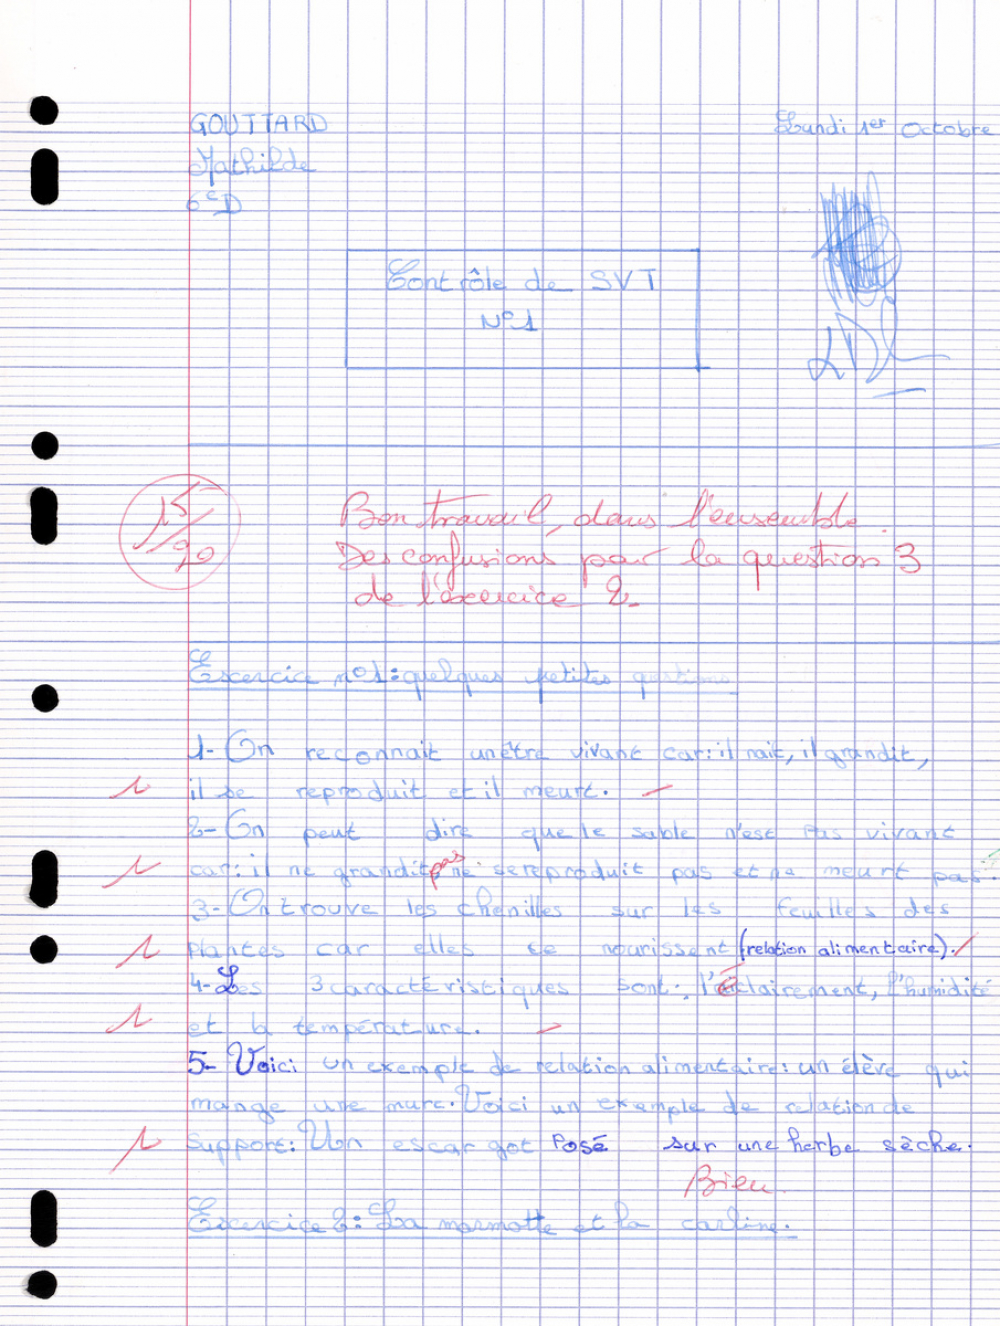 GOUTTARD
Lundi 1er Octobre
Mathilde
6eD
Contrôle de SVT
N°1
15/20
Bon travail, dans l'ensemble.
Des confusions pour la question 3
de l'exercice 2.
Excercice n°1: quelques petites questions
1- On reconnait un être vivant car: il nait, il grandit,
il se reproduit et il meurt.
2- On peut dire que le sable n'est pas vivant
car: il ne grandit pas ne se reproduit pas et ne meurt pas.
3- On trouve les chenilles sur les feuilles des
plantes car elles se nourissent (relation alimentaire).
4- Les 3 caractéristiques sont: l'éclairement, l'humidité
et la température.
5- Voici un exemple de relation alimentaire: un élève qui
mange une mure. Voici un exemple de relation de
support: Un escargot posé sur une herbe sèche.
Bien
Excercice 2: La marmotte et la carline.